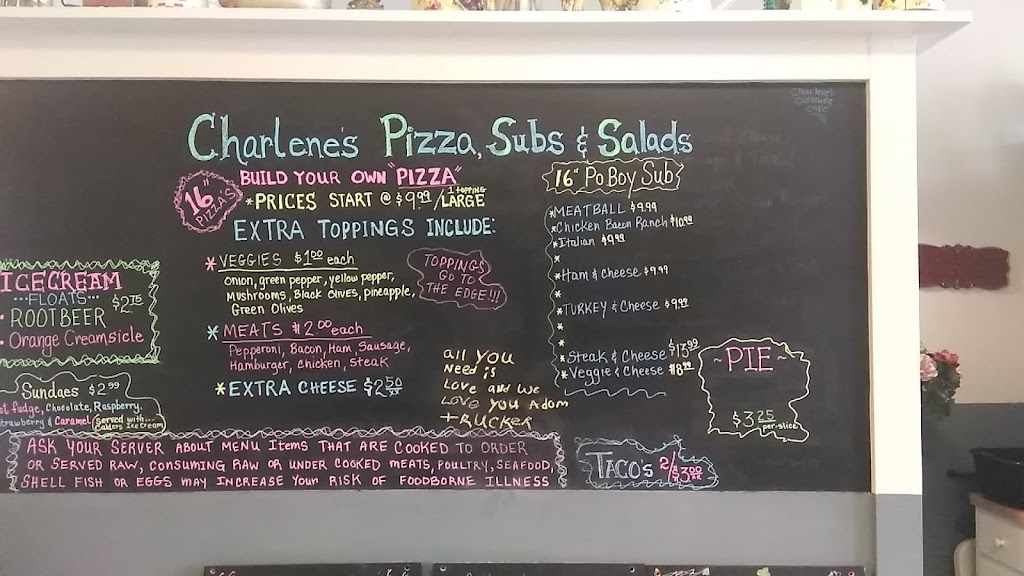 Charlene's Pizza, Subs & Salads
Charlene's
Curbside
Cafe
16"
PIZZA'S
BUILD YOUR OWN "PIZZA"
*PRICES START @ $9.99/1 topping LARGE
EXTRA TOPPINGS INCLUDE:
*VEGGIES $1.00 each
Onion, green pepper, yellow pepper,
Mushrooms, Black Olives, pineapple,
Green Olives
TOPPINGS
GO TO
THE EDGE!!!
*MEATS $2.00 each
Pepperoni, Bacon, Ham, Sausage,
Hamburger, chicken, steak
*EXTRA CHEESE $2.50
all you
Need is
Love and we
Love you Adam
+ Rucker
16" Po Boy Sub
*MEATBALL $9.99
*Chicken Bacon Ranch $10.99
*Italian $9.99
*
*Ham & Cheese $9.99
*
*TURKEY & Cheese $9.99
*
*
*Steak & Cheese $13.99
*Veggie & Cheese $8.99
~PIE~
$3.25
per slice
TACO'S 2/$3.00
ICECREAM
...FLOATS... $2.75
• ROOTBEER
• Orange Creamsicle
Sundaes $2.99
Hot fudge, Chocolate, Raspberry,
Strawberry & Caramel
Served with
Bakers Ice Cream
ASK YOUR SERVER ABOUT MENU Items THAT ARE COOKED TO ORDER
OR SERVED RAW, CONSUMING RAW OR UNDER COOKED MEATS, POULTRY, SEAFOOD,
SHELL FISH OR EGGS MAY INCREASE YOUR RISK OF FOODBORNE ILLNESS